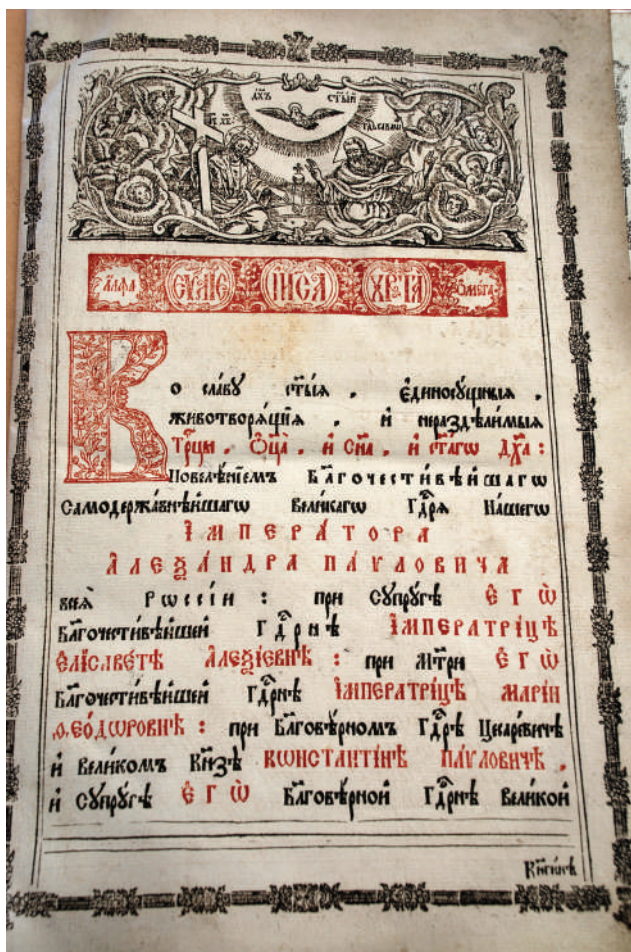 ДХЪ СТЫЙ
ГДЬ САВАОѲ
А҆́ЛФА ЕѴ҃ЛІЕ І҆И҃СА ХР҃ТА Ѡ҆МЕ́ГА
Ко сла́вѹ ст҃ы́ѧ , є҆диносѹ́щныѧ ,
животворѧ́щїѧ , и҆ нераздѣли́мыѧ
Трⷪ҇цы , Ѻ҆ц҃а̀ , и҆ Сн҃а , и҆ ст҃а́гѡ Дх҃а :
Повелѣ́нїемъ Бл҃гочести́вѣйшагѡ
Самодержа́внѣйшагѡ Вели́кагѡ Гдⷭ҇рѧ На́шегѡ
І҆МПЕРА́ТОРА
А҆ЛЕѮА́НДРА ПА́ѴЛОВИЧА
всеѧ̀ Рѡссі́и : при Сѹпрѹ́гѣ Є҆ГѠ̀
Бл҃гочести́вѣйшей Гдⷭ҇рнѣ І҆МПЕРАТРИ́ЦѢ
Є҆ЛІСАВЕ́ТѢ А҆ЛЕѮІ́ЕВНѢ : при Мт҃ри Є҆ГѠ̀
Бл҃гочести́вѣйшей Гдⷭ҇рнѣ І҆МПЕРАТРИ́ЦѢ МАРІ́И
Ѳ҆ЕО́ДѠРОВНѢ : при Бл҃говѣ́рномъ Гдⷭ҇рѣ Цесаре́вичѣ
и҆ Вели́комъ Кн҃зѣ КѠНСТАНТІ́НѢ ПА́ѴЛОВИЧѢ ,
и҆ Сѹпрѹ́гѣ Є҆ГѠ̀ Бл҃говѣ́рной Гдⷭ҇рнѣ Вели́кой
Кн҃ги́нѣ